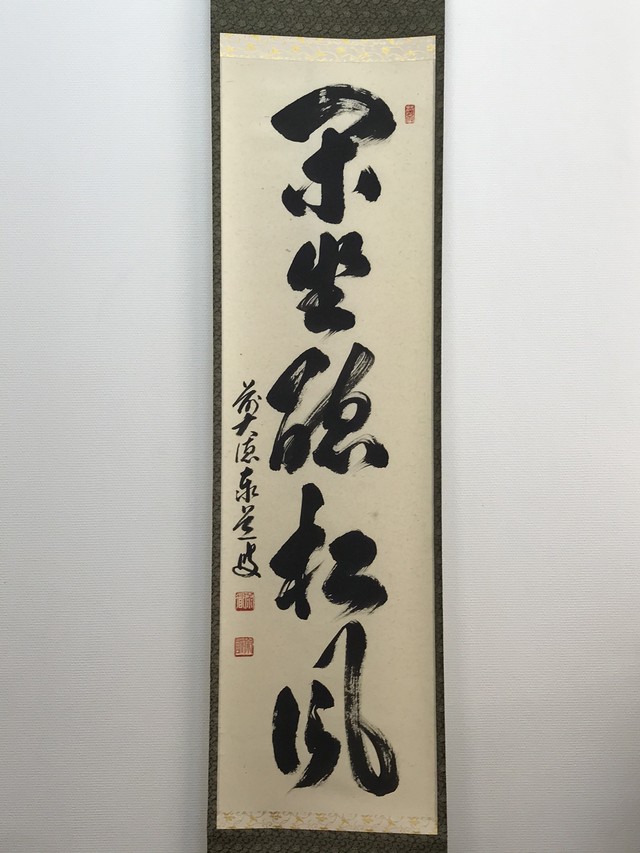 閑坐聴松風
前大徳泰道叟